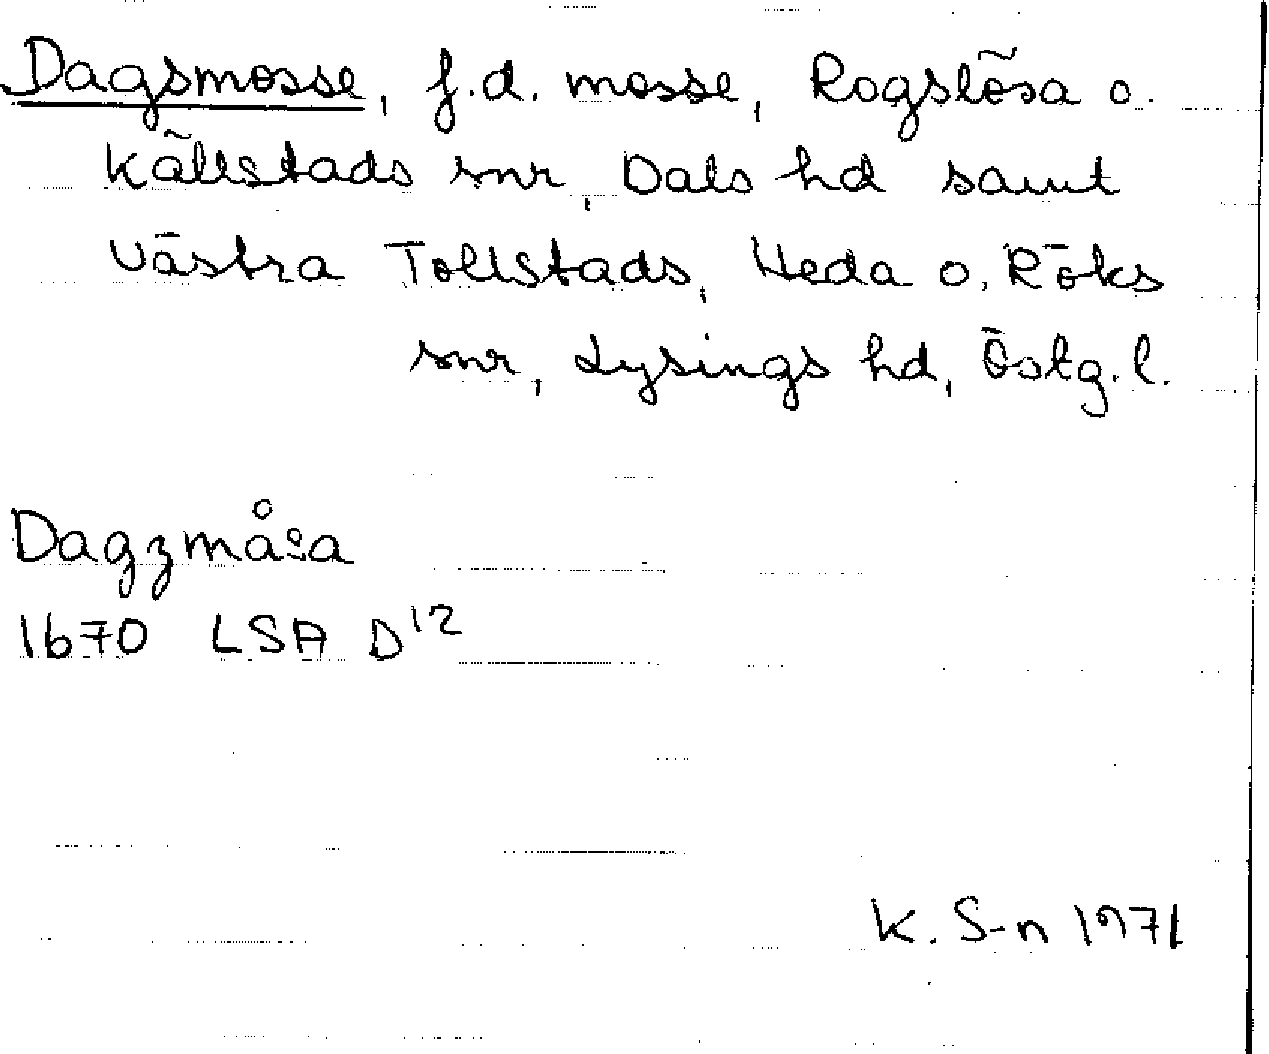 Dagsmosse, f.d. mosse, Rogslösa o.
Källstads snr, Dals hd samt
Västra Tollstads, Heda o. Röks
snr, Lysings hd, Östg. l.
Dagzmåsa
1670 LSA D12
K. S-n 1971